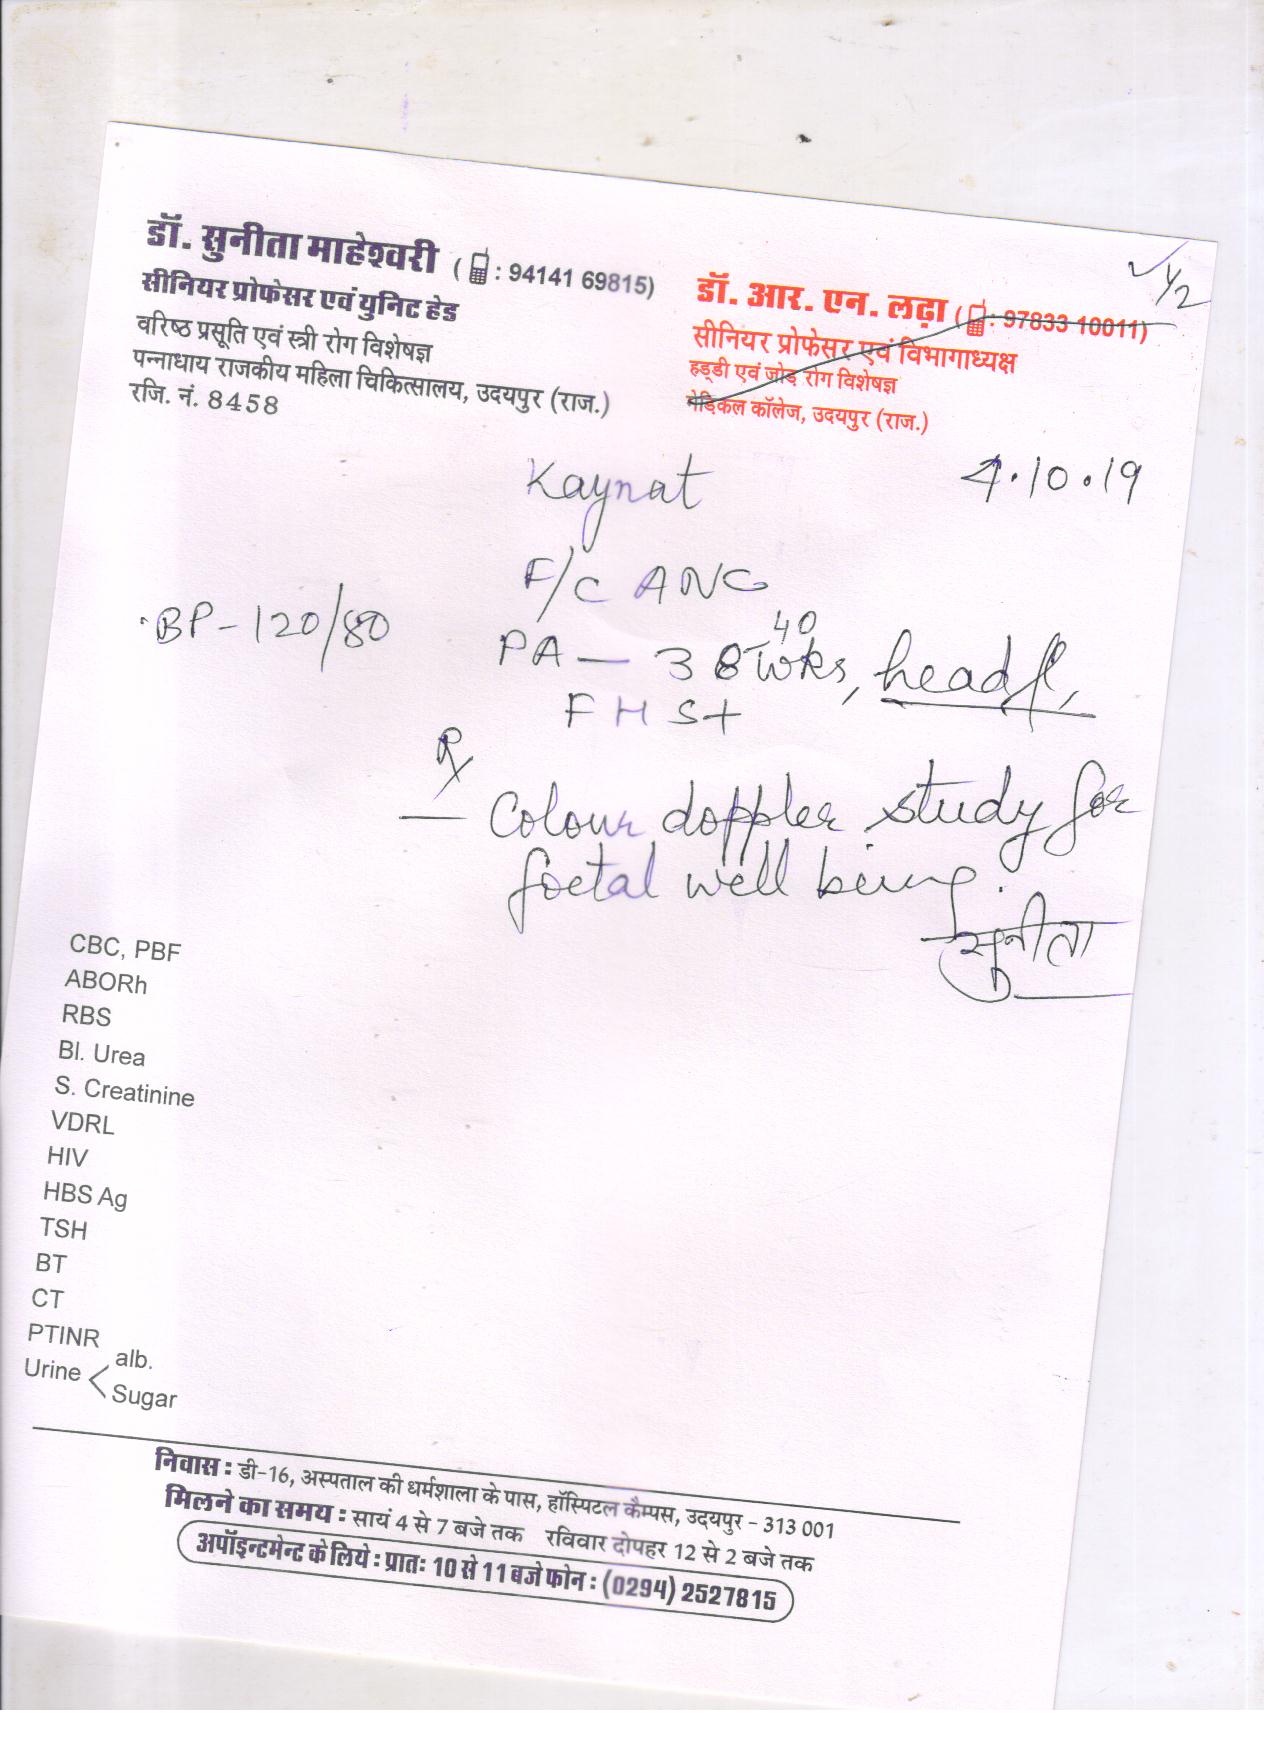 डॉ. सुनीता माहेश्वरी ( : 94141 69815)
सीनियर प्रोफेसर एवं युनिट हेड
वरिष्ठ प्रसूति एवं स्त्री रोग विशेषज्ञ
पन्नाधाय राजकीय महिला चिकित्सालय, उदयपुर (राज.)
रजि. नं. 8458
डॉ. आर. एन. लढ़ा ( : 97833 10011)
सीनियर प्रोफेसर एवं विभागाध्यक्ष
हड्डी एवं जोड़ रोग विशेषज्ञ
मेडिकल कॉलेज, उदयपुर (राज.)
Kaynat
4.10.19
F/C ANC
BP-120/80
40
PA - 38 wks, head fl,
FHS+
Rx
- Colour doppler study for
foetal well being.
सुनीता
CBC, PBF
ABORh
RBS
Bl. Urea
S. Creatinine
VDRL
HIV
HBS Ag
TSH
BT
CT
PTINR
Urine < alb.
Sugar
निवास : डी-16, अस्पताल की धर्मशाला के पास, हॉस्पिटल कैम्पस, उदयपुर - 313 001
मिलने का समय : सायं 4 से 7 बजे तक रविवार दोपहर 12 से 2 बजे तक
अपॉइन्टमेन्ट के लिये : प्रातः 10 से 11 बजे फोन : (0294) 2527815